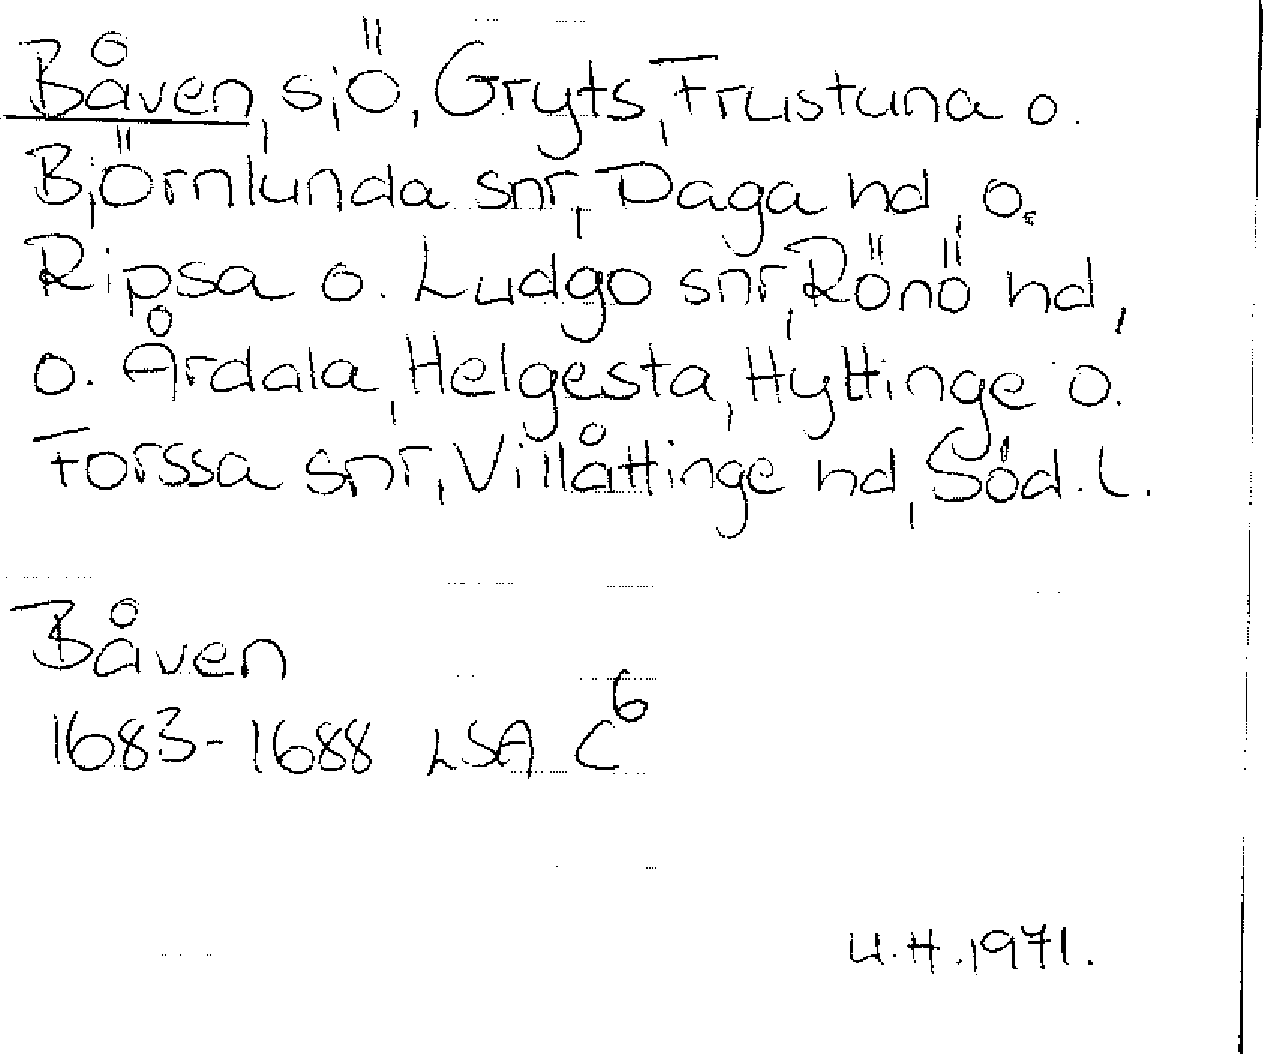 Båven, sjö, Gryts, Frustuna o.
Björnlunda snr, Daga hd, o.
Ripsa o. Ludgo snr, Rönö hd,
o. Årdala, Helgesta, Hyltinge o.
Forssa snr, Villåttinge hd, Söd. l.
Båven
1683-1688 LSA C⁶
U.H. 1971.